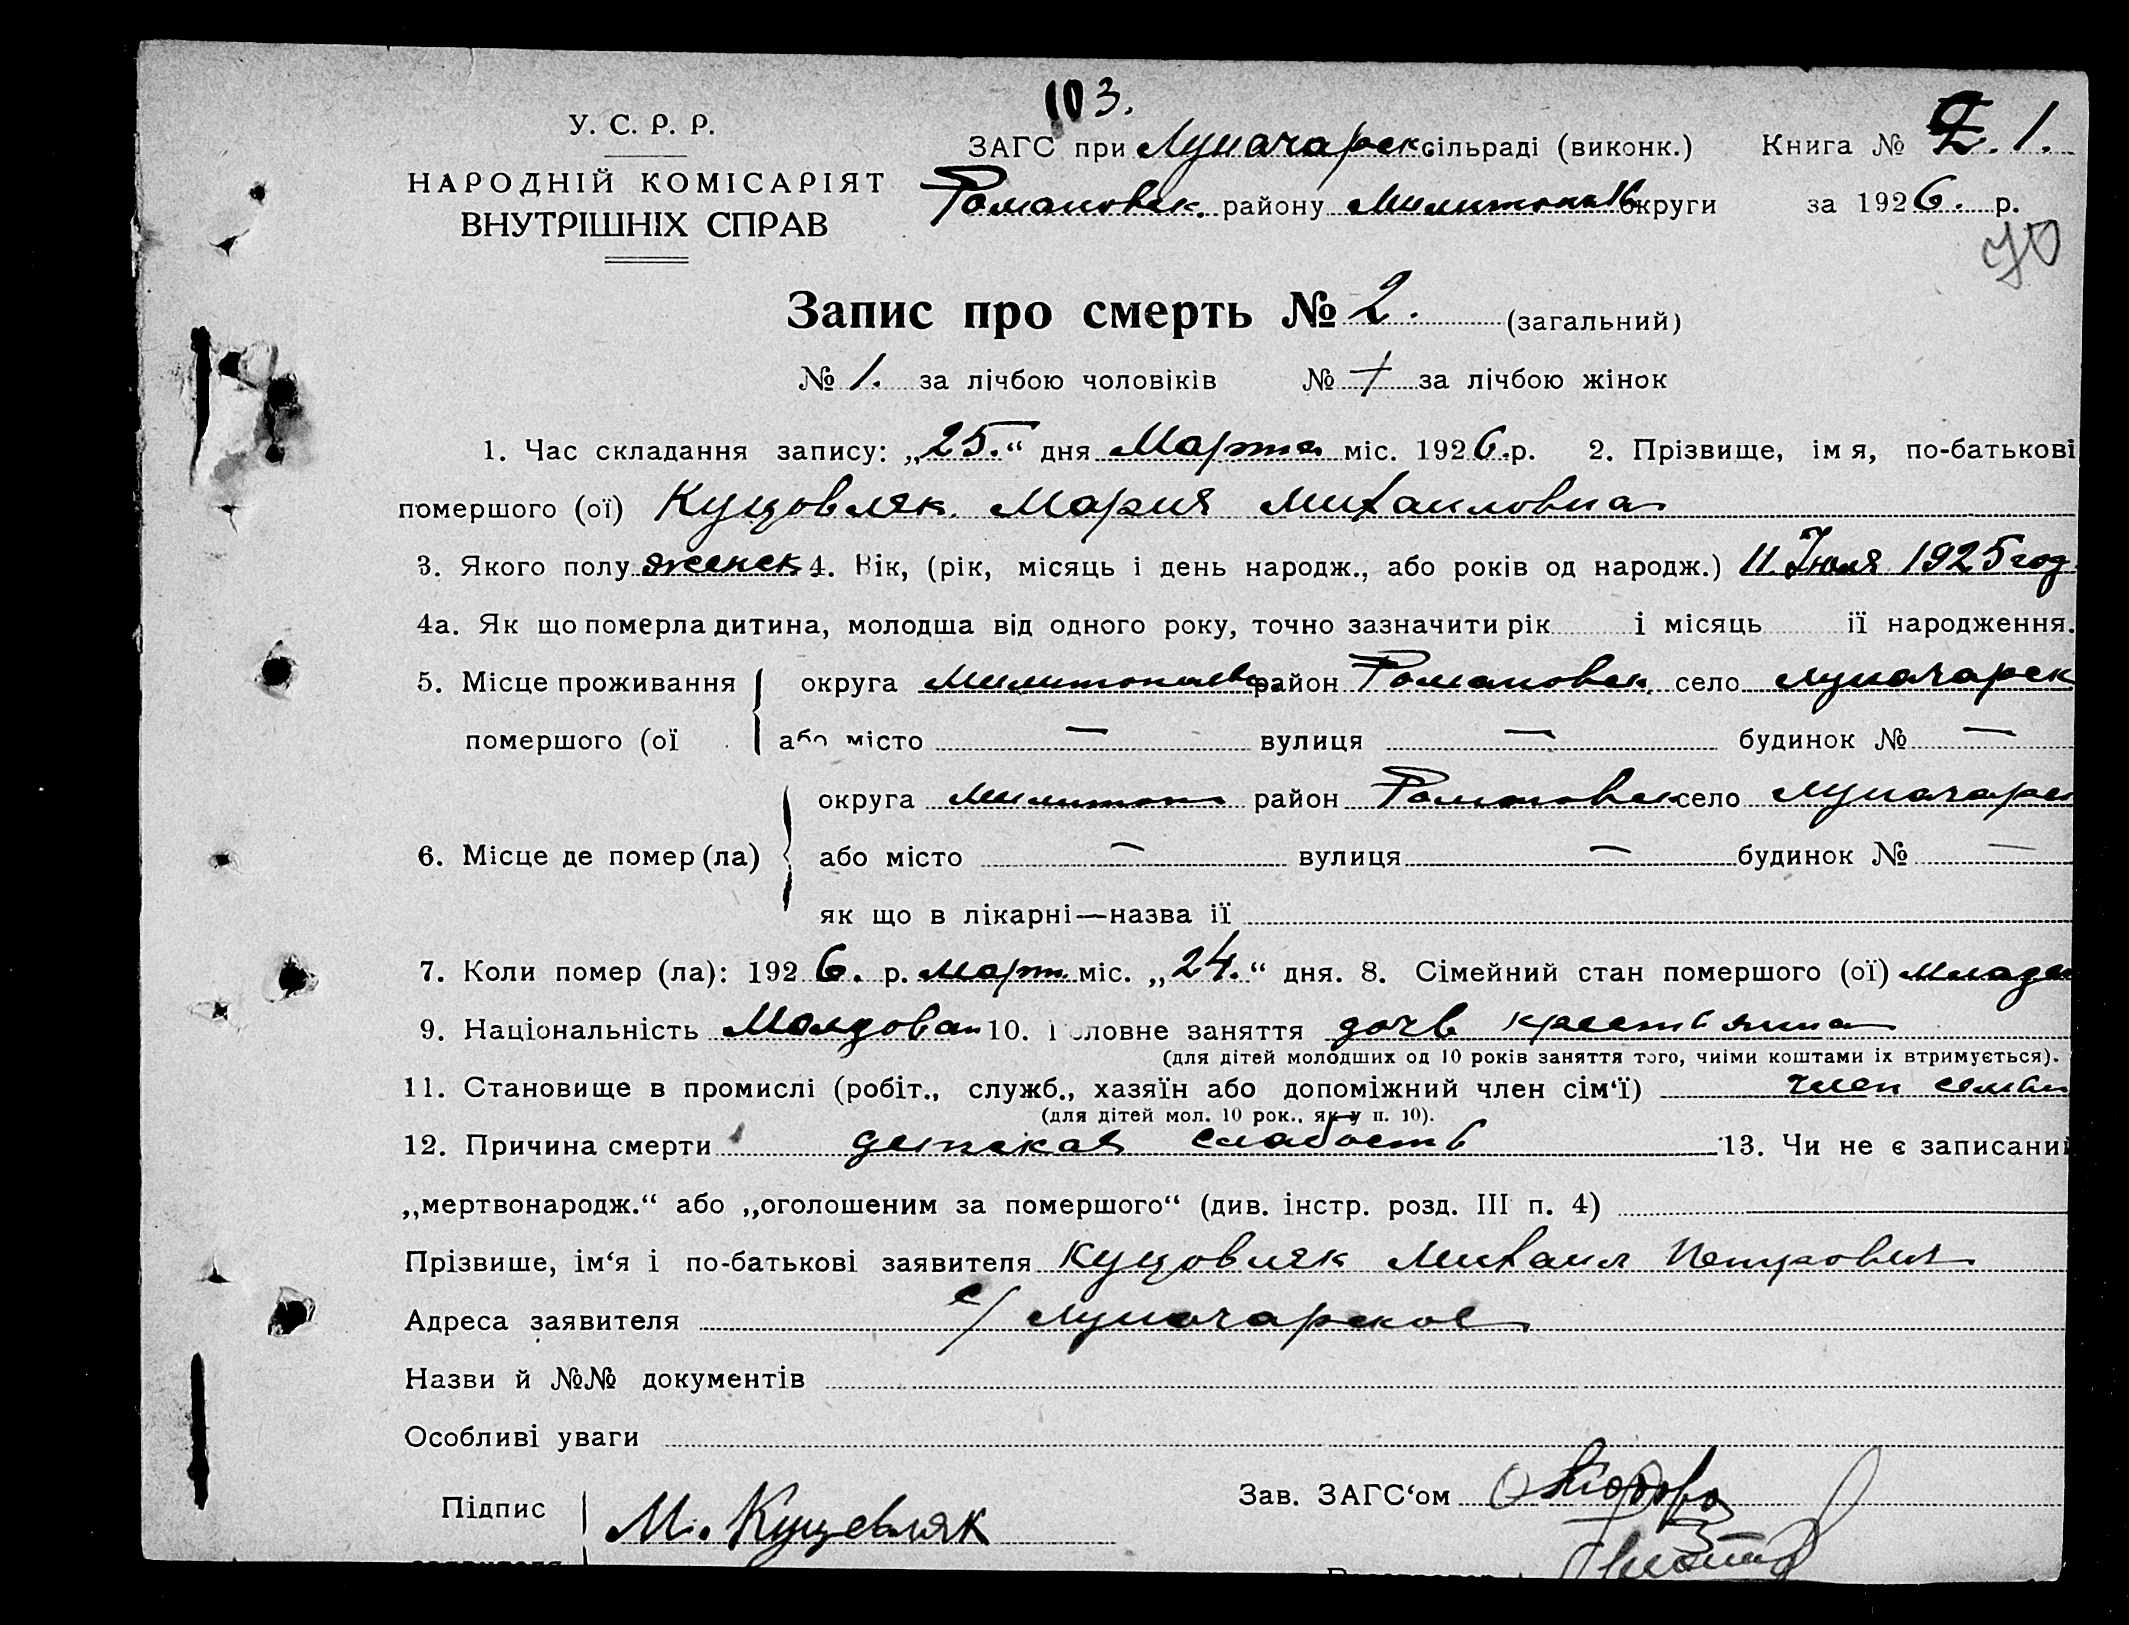 103.
У. С. Р. Р.
ЗАГС при Луначарск сільраді (виконк.) Книга № 1.
НАРОДНІЙ КОМІСАРІЯТ
Романовск. району Мелитопольс округи за 1926. р.
ВНУТРІШНІХ СПРАВ
70
Запис про смерть № 2. (загальний)
№ 1. за лічбою чоловіків № за лічбою жінок
1. Час складання запису: „25.“ дня Марта міс. 1926.р. 2. Прізвище, ім я, по-батькові
помершого (ої) Куцовляк Мария Михаиловна
3. Якого полу женск 4. Вік, (рік, місяць і день народж., або років од народж.) 11 Июля 1925 год
4а. Як що померла дитина, молодша від одного року, точно зазначити рік і місяць її народження.
5. Місце проживання округа Мелитопольск район Романовск. село Луначарск
помершого (ої або місто — вулиця — будинок № —
округа Мелитоп район Романовск село Луначарс
6. Місце де помер (ла) або місто — вулиця — будинок № —
як що в лікарні—назва її
7. Коли помер (ла): 1926. р. Март. міс. „24.“ дня. 8. Сімейний стан помершого (ої) Младен
9. Національність Молдован 10. Головне заняття дочь крестьянина
(для дітей молодших од 10 років заняття того, чиїми коштами їх втримується).
11. Становище в промислі (робіт., служб., хазяїн або допоміжний член сім‘ї) член семьи
(для дітей мол. 10 рок., як у п. 10).
12. Причина смерти детская слабость 13. Чи не є записаний
„мертвонародж.“ або „оголошеним за помершого“ (див. інстр. розд. III п. 4)
Прізвише, ім‘я і по-батькові заявителя Куцовляк Михаил Петрович
Адреса заявителя с/ Луначарское
Назви й №№ документів
Особливі уваги
Зав. ЗАГС‘ом
Підпис М. Куцевляк
заявителя